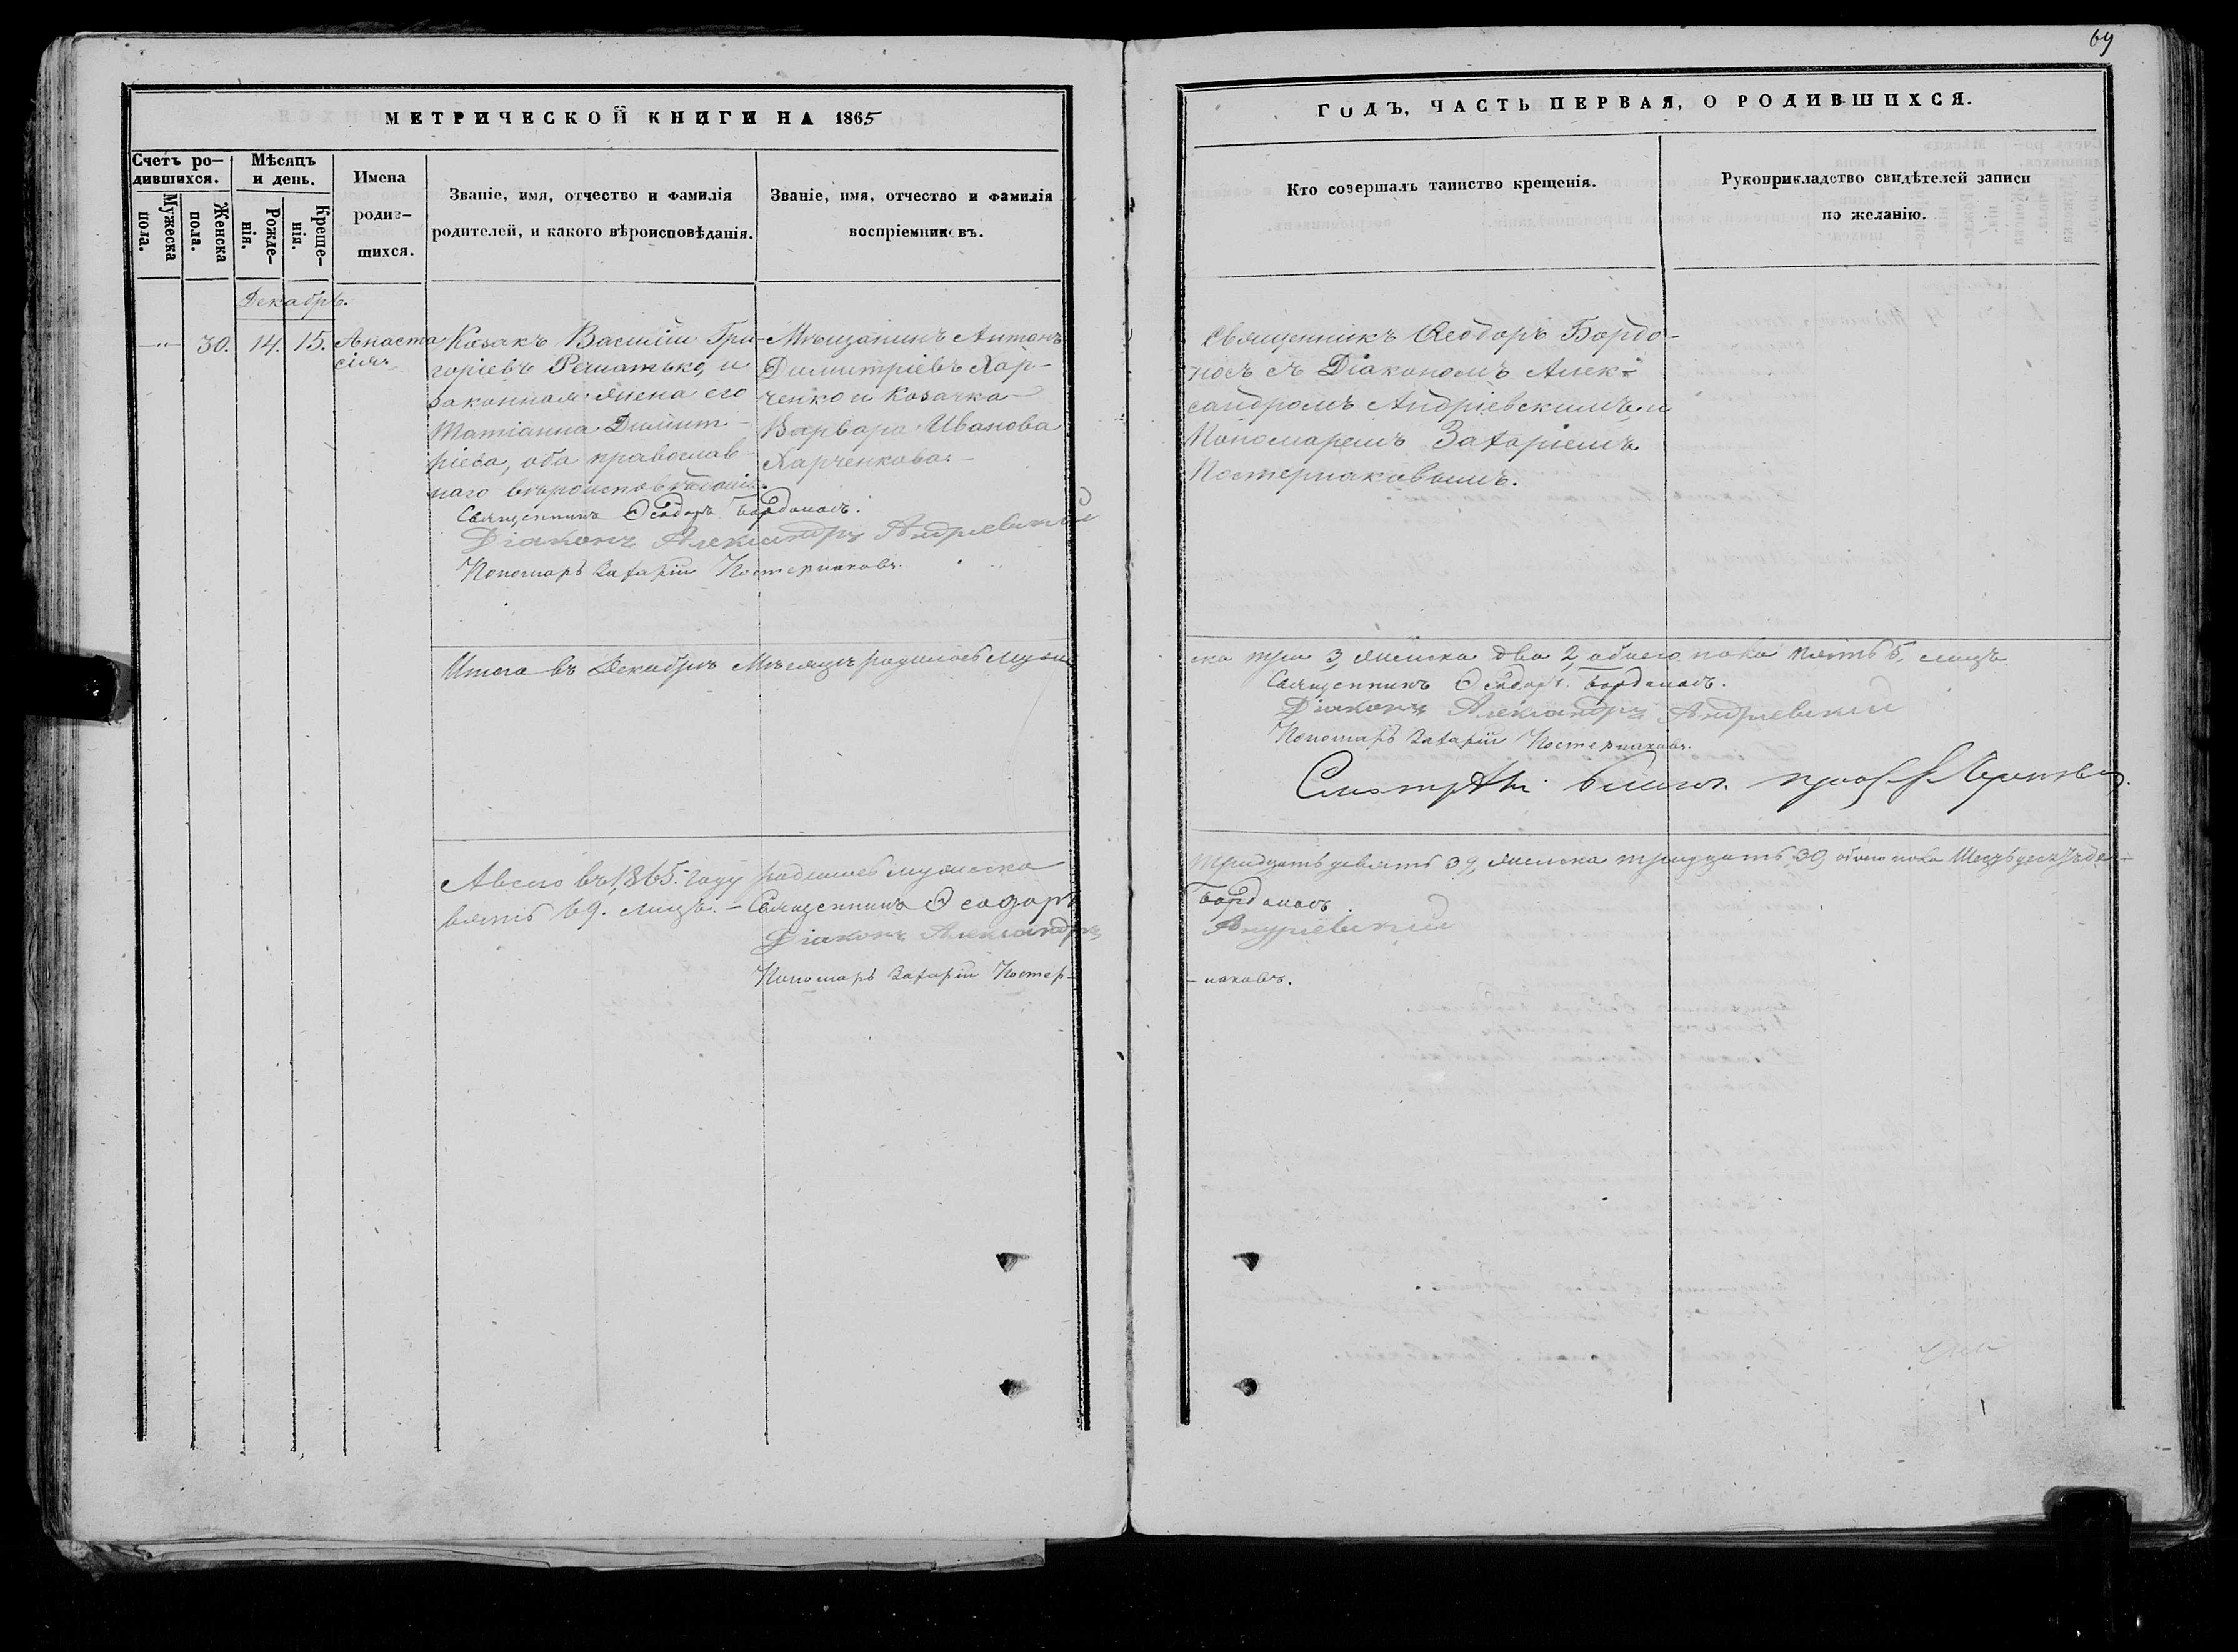 69
МЕТРИЧЕСКОЙ КНИГИ НА 1865
ГОДЪ, ЧАСТЬ ПЕРВАЯ, О РОДИВШИХСЯ.
Счетъ ро-
дившихся.
Мужеска
пола.
Женска
пола.
Мѣсяцъ
и день.
Рожде-
нія.
Креще-
нія.
Имена
родив-
шихся.
Званіе, имя, отчество и фамилія
родителей, и какого вѣроисповѣданія.
Званіе, имя, отчество и фамилія
воспріемниковъ.
Кто совершалъ таинство крещенія.
Рукоприкладство свидѣтелей записи
по желанію.
Декабрь.
-"- 30. 14. 15.
Анаста
сія
Козакъ Василій Гри-
горіевъ Решатько, и
законная жена его
Татіанна Димит-
ріева, оба православ-
наго вѣроисповѣданія.
Мѣщанинъ Антонъ
Димитріевъ Хар-
ченко и Козачка
Варвара Иванова
Харченкова.-
Священникъ Ѳеодоръ Бордо-
носъ съ Діакономъ Алек-
сандромъ Андріевскимъ и
Пономаремъ Захаріемъ
Постернаковымъ.
Священникъ Ѳеодоръ Бордоносъ.
Діаконъ Александръ Андріевскій
Пономарь Захарій Постернаковъ.
Итого въ Декабрѣ Мѣсяцѣ родилось муже
ска три 3, женска два 2, обоего пола пять 5, лицъ
Священникъ Ѳеодоръ Бордоносъ.
Діаконъ Александръ Андріевскій
Пономарь Захарій Постернаковъ.
Смотрѣлъ
А всего въ 1865. году родилось мужеска
тридцать девять 39, женска тридцать 30, обоего пола Шесдесятъ де-
вять 69. лицъ. - Священникъ Ѳеодоръ
Бордоносъ.
Діаконъ Александръ
Андріевскій
Пономарь Захарій Постер-
- наковъ.